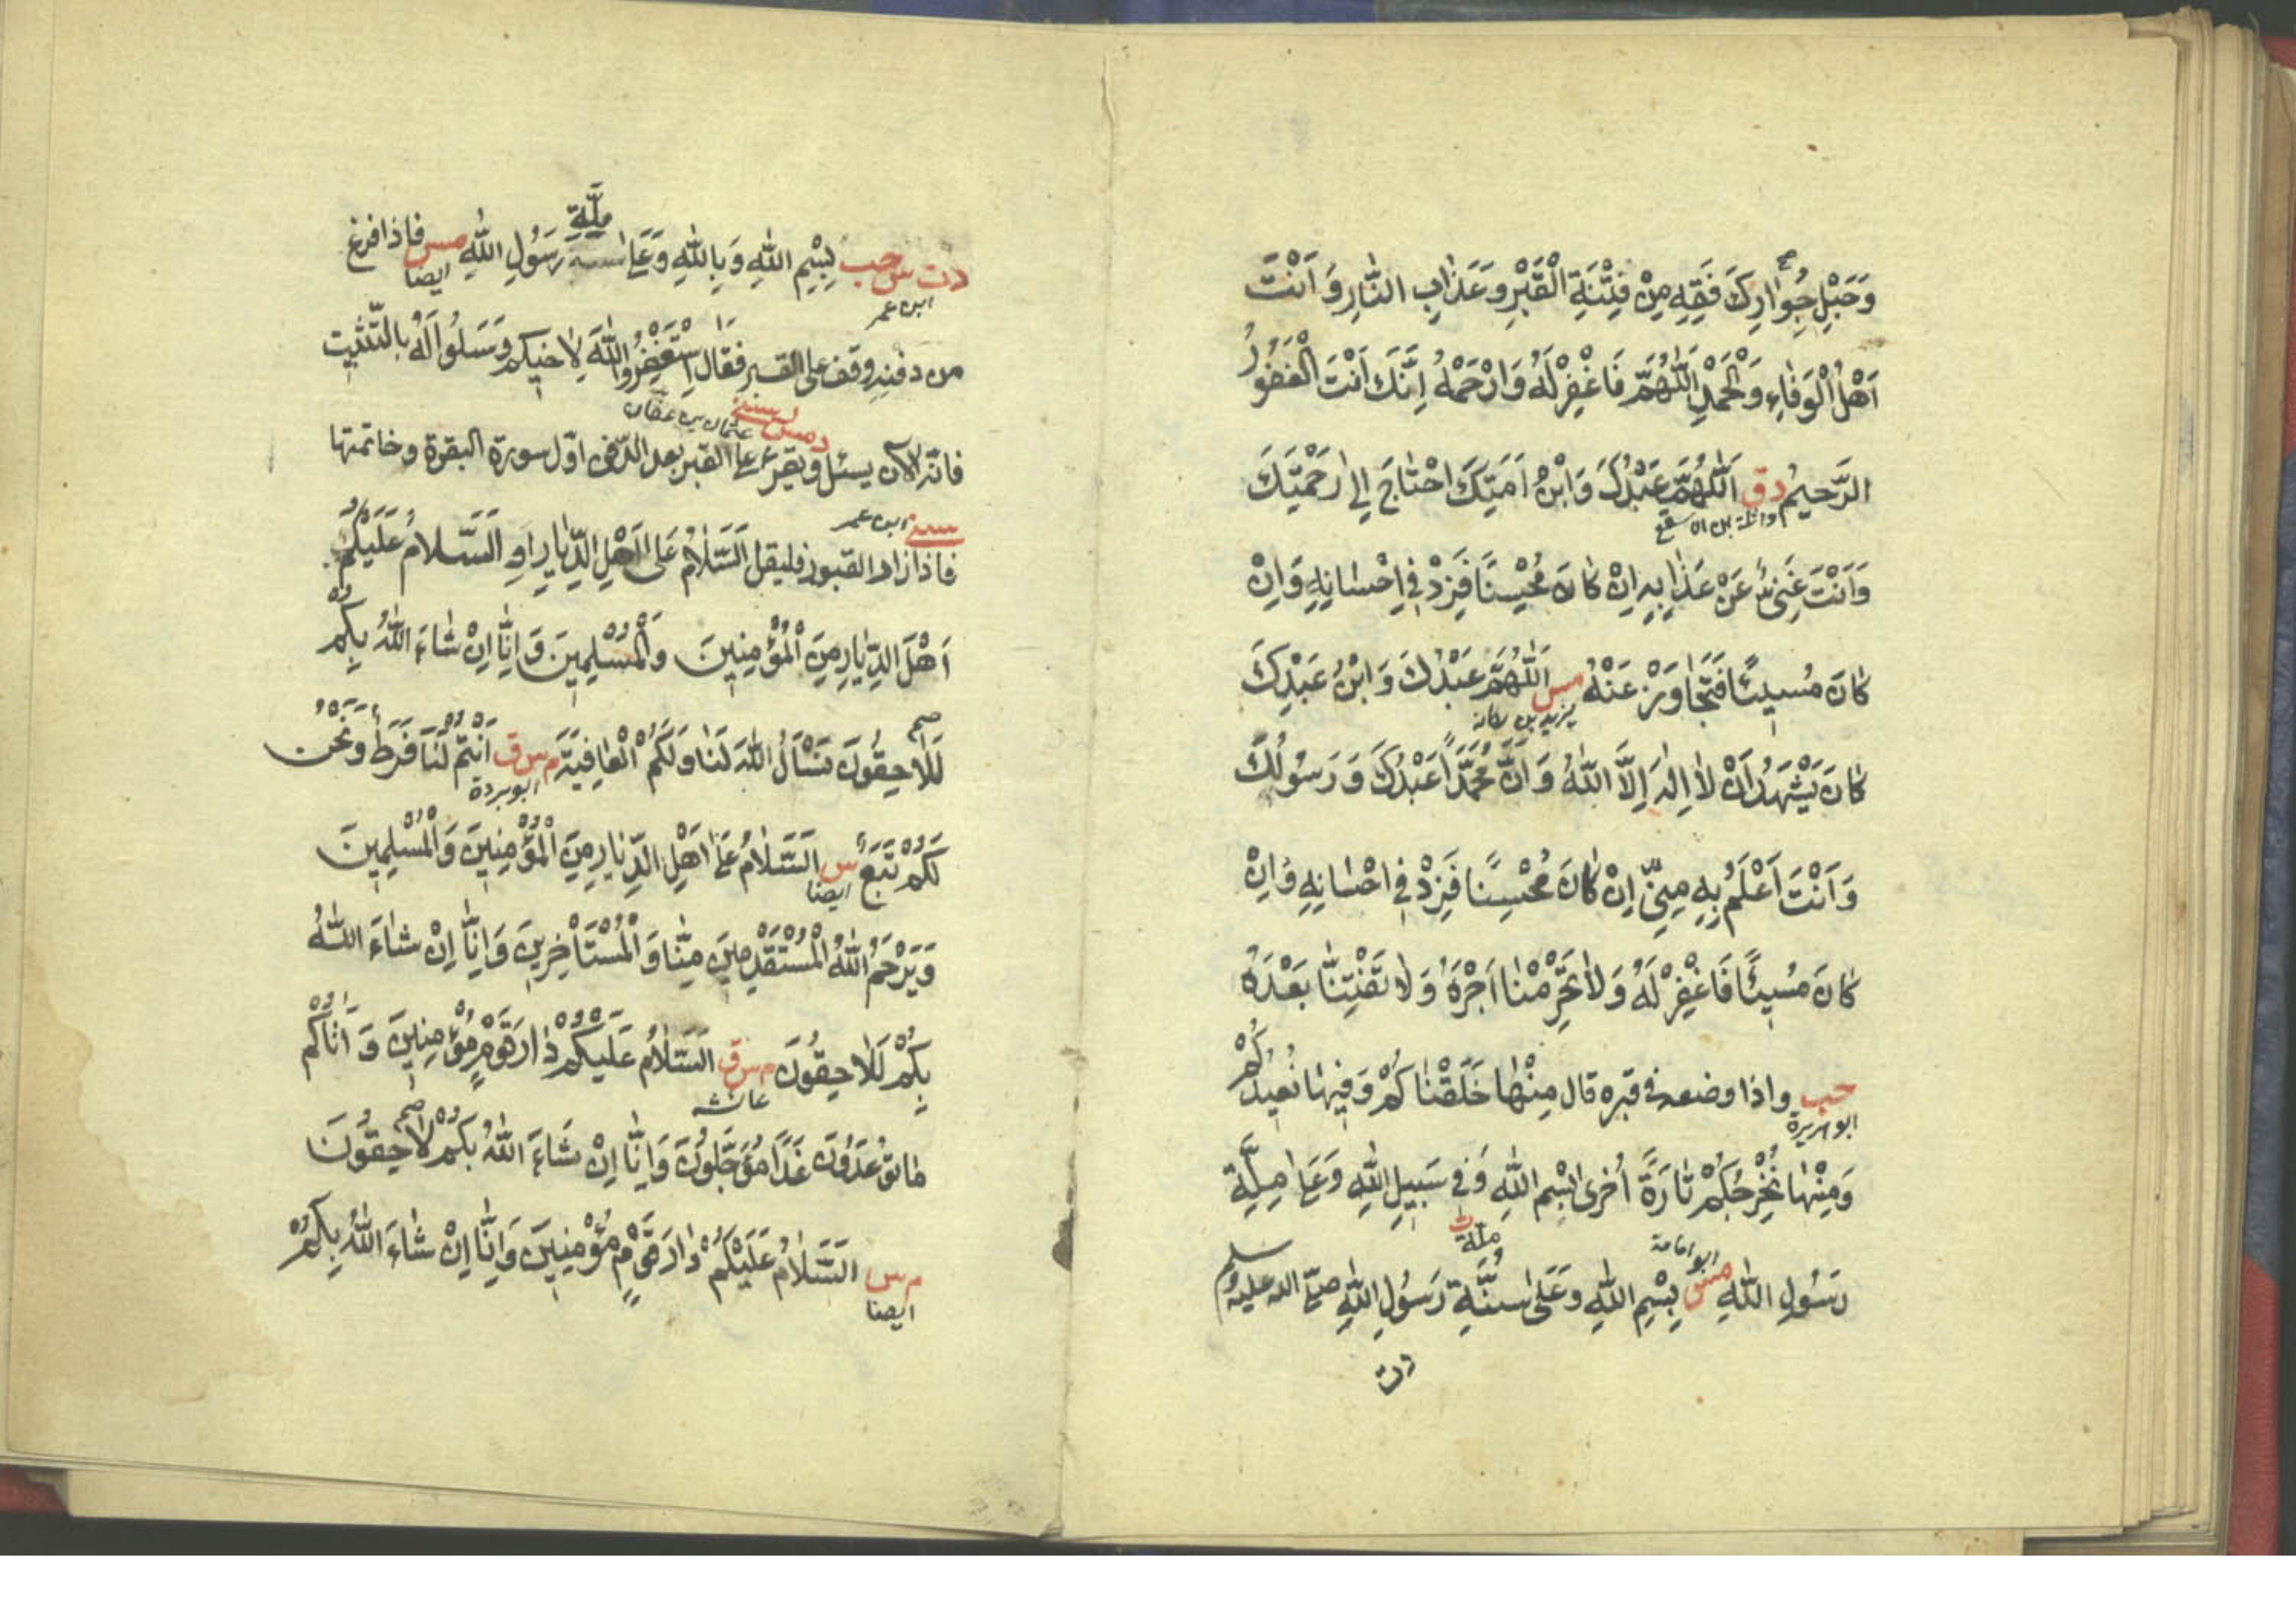 وَحَبْلِ جِوَارِكَ فَقِهِ مِنْ فِتْنَةِ الْقَبْرِ وَعَذَابِ النَّارِ وَاَنْتَ
اَهْلُ الْوَفَاءِ وَالْحَمْدِ اَللّٰهُمَّ فَاغْفِرْ لَهُ وَارْحَمْهُ اِنَّكَ اَنْتَ الْغَفُوْرُ
الرَّحِيمُ دق اَللّٰهُمَّ عَبْدُكَ وَابْنُ اَمَتِكَ احْتَاجَ اِلٰى رَحْمَتِكَ
واثلة بن الاسقع
وَاَنْتَ غَنِيٌّ عَنْ عَذَابِهِ اِنْ كَانَ مُحْسِنًا فَزِدْ فِي اِحْسَانِهِ وَاِنْ
كَانَ مُسِيئًا فَتَجَاوَزْ عَنْهُ مس اَللّٰهُمَّ عَبْدُكَ وَابْنُ عَبْدِكَ
يزيد بن ركانة
كَانَ يَشْهَدُ اَنْ لَا اِلٰهَ اِلَّا اللّٰهُ وَاَنَّ مُحَمَّدًا عَبْدُكَ وَرَسُولُكَ
وَاَنْتَ اَعْلَمُ بِهِ مِنِّي اِنْ كَانَ مُحْسِنًا فَزِدْ فِي اِحْسَانِهِ وَاِنْ
كَانَ مُسِيئًا فَاغْفِرْ لَهُ وَلَا تَحْرِمْنَا اَجْرَهُ وَلَا تَفْتِنَّا بَعْدَهُ
حب واذا وضعه فى قبره قال مِنْهَا خَلَقْنَاكُمْ وَفِيهَا نُعِيدُكُمْ
ابو هريرة
وَمِنْهَا نُخْرِجُكُمْ تَارَةً اُخْرٰى بِسْمِ اللّٰهِ وَفِي سَبِيلِ اللّٰهِ وَعَلٰى مِلَّةِ
ابو امامة ملة ت
رَسُولِ اللّٰهِ مس بِسْمِ اللّٰهِ وَعَلٰى سُنَّةِ رَسُولِ اللّٰهِ صلى الله عليه وسلم
دت
ملَّةِ
دت س حب بِسْمِ اللّٰهِ وَبِاللّٰهِ وَعَلٰى رَسُولِ اللّٰهِ مس فاذا فرغ
ابن عمر ايضا
من دفنه وقف على القبر فقال اِسْتَغْفِرُوا اللّٰهَ لِاَخِيكُمْ وَسَلُوا لَهُ بِالتَّثْبِيتِ
د مس سنى عثمان بن عفان
فانه الآن يسئل ويقرء على القبر بعد الدفن اول سورة البقرة وخاتمتها
سنى ابن عمر
فاذا زار القبور فليقل اَلسَّلَامُ عَلٰى اَهْلِ الدِّيَارِ اَوِ اَلسَّلَامُ عَلَيْكُمْ
اَهْلَ الدِّيَارِ مِنَ الْمُؤْمِنِينَ وَالْمُسْلِمِينَ وَاِنَّا اِنْ شَاءَ اللّٰهُ بِكُمْ
لَلَاحِقُونَ نَسْأَلُ اللّٰهَ لَنَا وَلَكُمُ الْعَافِيَةَ م س ق اَنْتُمْ لَنَا فَرَطٌ وَنَحْنُ
ابو بردة
لَكُمْ تَبَعٌ س اَلسَّلَامُ عَلٰى اَهْلِ الدِّيَارِ مِنَ الْمُؤْمِنِينَ وَالْمُسْلِمِينَ
ايضا
وَيَرْحَمُ اللّٰهُ الْمُسْتَقْدِمِينَ مِنَّا وَالْمُسْتَأْخِرِينَ وَاِنَّا اِنْ شَاءَ اللّٰهُ
بِكُمْ لَلَاحِقُونَ م س ق اَلسَّلَامُ عَلَيْكُمْ دَارَ قَوْمٍ مُؤْمِنِينَ وَاَتَاكُمْ
عائشه
مَا تُوعَدُونَ غَدًا مُؤَجَّلُونَ وَاِنَّا اِنْ شَاءَ اللّٰهُ بِكُمْ لَاحِقُونَ
م س اَلسَّلَامُ عَلَيْكُمْ دَارَ قَوْمٍ مُؤْمِنِينَ وَاِنَّا اِنْ شَاءَ اللّٰهُ بِكُمْ
ايضا